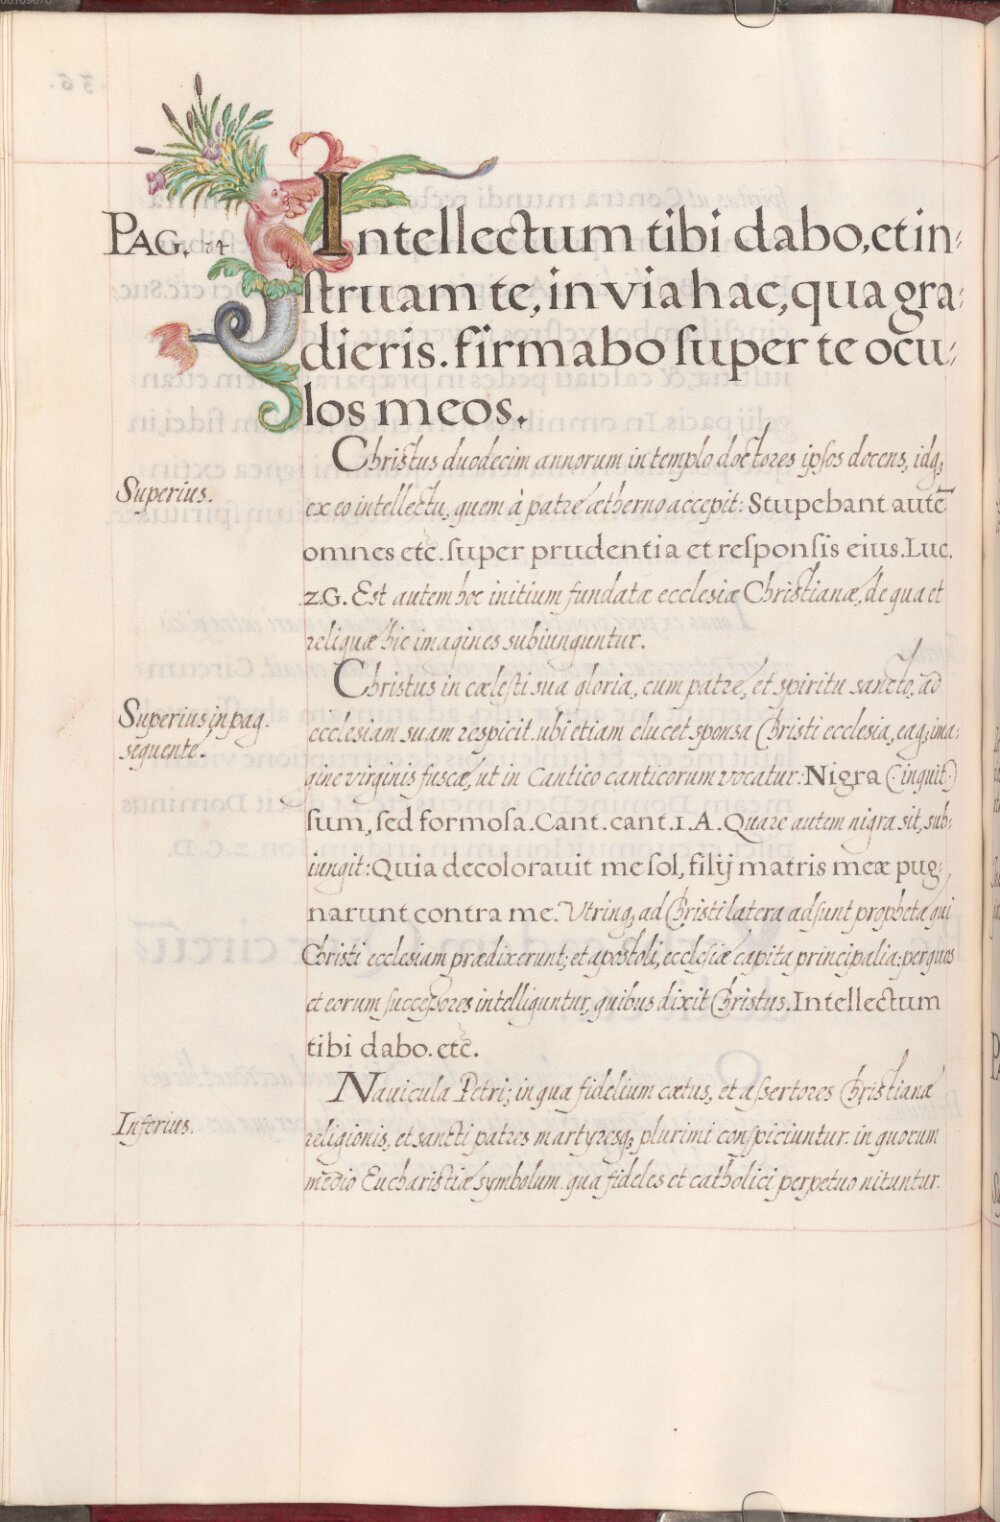 PAG. 74
Intellectum tibi dabo, et in:
struam te, in via hac, qua gra:
dieris. firmabo super te ocu:
los meos.
Superius.
Christus duodecim annorum in templo doctores ipsos docens, idq;
ex eo intellectu, quem à patre ætherno accepit: Stupebant autē
omnes etc. super prudentia et responsis eius. Luc.
2.G. Est autem hoc initium fundatæ ecclesiæ Christianæ, de qua et
reliquæ hic imagines subiunguntur.
Superius in pag.
sequente.
Christus in cælesti sua gloria, cum patre, et spiritu sancto, ad
ecclesiam suam respicit. ubi etiam elucet sponsa Christi ecclesia, eaq; ima:
gine virginis fuscæ, ut in Cantico canticorum vocatur: Nigra (inquit)
sum, sed formosa. Cant. cant. 1. A. Quare autem nigra sit, sub:
iungit: Quia decoloravit me sol, filij matris meæ pug:
narunt contra me. Utrinq; ad Christi latera adsunt prophetæ qui
Christi ecclesiam prædixerunt; et apostoli, ecclesiæ capita principalia; per quos
et eorum successores intelliguntur, quibus dixit Christus. Intellectum
tibi dabo. etc.
Inferius.
Navicula Petri; in qua fidelium cætus, et assertores Christianæ
religionis, et sancti patres martyresq; plurimi conspiciuntur. in quorum
medio Eucharistiæ symbolum. qua fideles et catholici perpetuo nituntur.